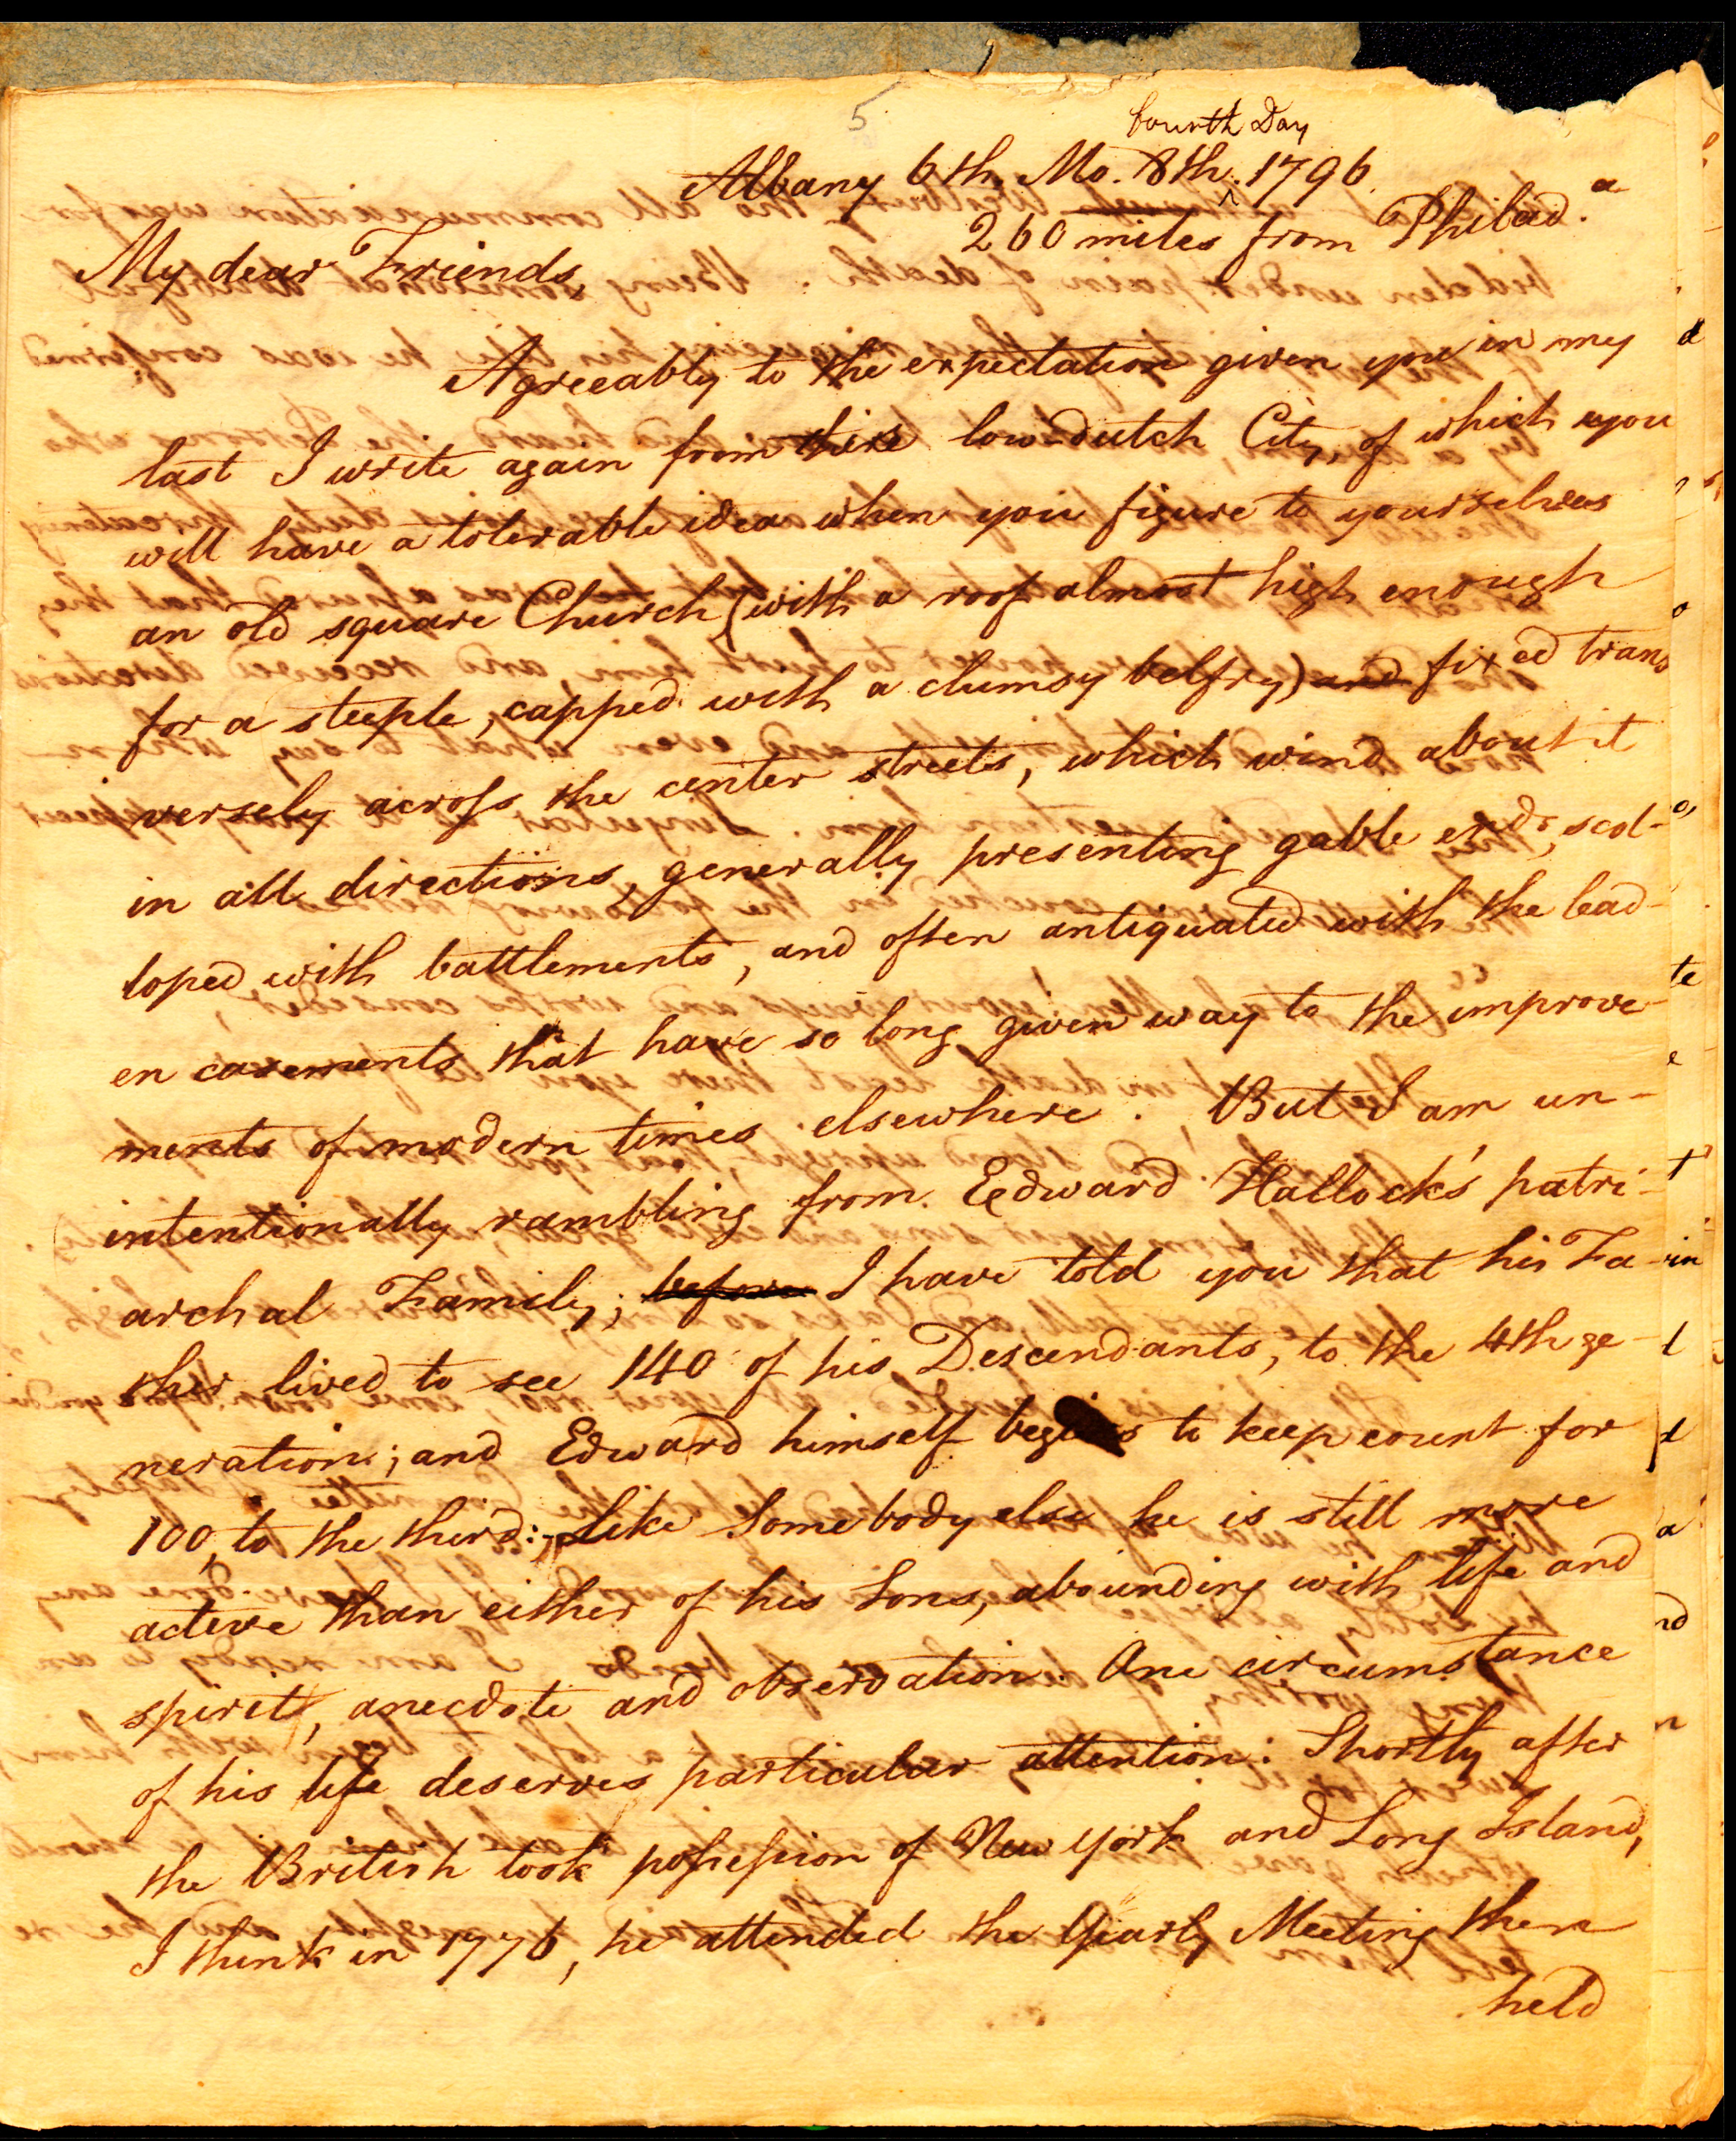 5
fourth Day
Albany 6th. Mo. 8th. ^ 1796.
260 miles from Philad.a
My dear Friends,
Agreeably to the expectation given you in my
last I write again from this low-dutch City, of which you
will have a tolerable idea when you figure to yourselves
an old square Church (with a roof almost high enough
for a steeple, capped with a clumsy belfry) and fixed trans
versely across the center streets, which wind about it
in all directions, generally presenting gable ends, scol-
loped with battlements, and often antiquated with the lead-
en casements that have so long given way to the improve-
ments of modern times elsewhere. But I am un-
intentionally rambling from Edward Hallock's patri-
archal Family; before I have told you that his Fa-
ther lived to see 140 of his Descendants, to the 4th ge-
neration; and Edward himself begins to keep count for
100, to the third: Like Somebody else he is still more
active than either of his Sons, abounding with life and
spirit, anecdote and observation. One circumstance
of his life deserves particular attention: Shortly after
the British took possession of New York and Long Island,
I think in 1776, he attended the Yearly Meeting there
held